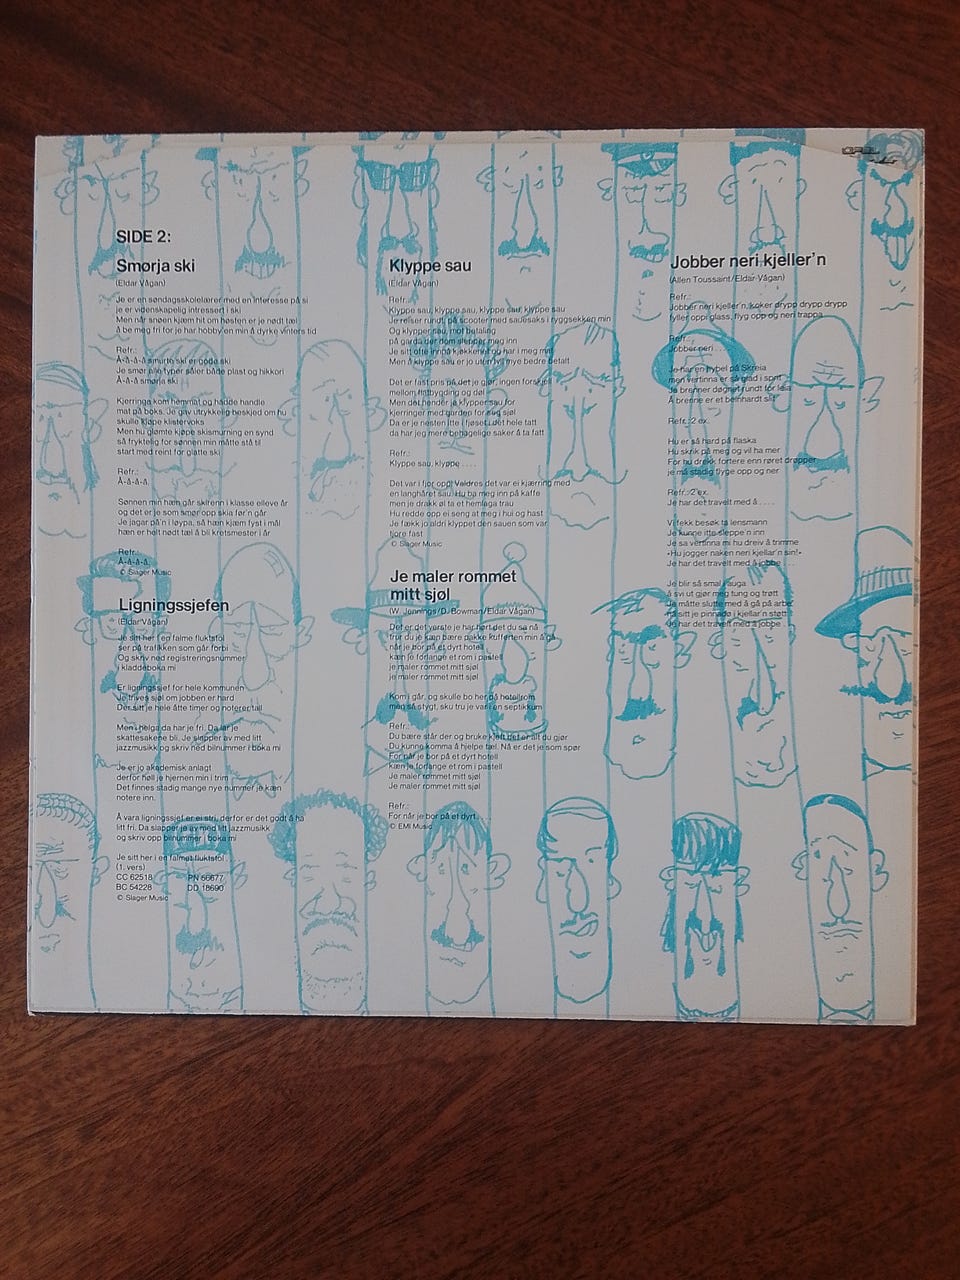 SIDE 2:
Smørja ski
(Eldar Vågan)
Je er en søndagsskolelærer med en interesse på si
je er videnskapelig intressert i ski
Men når snøen kjæm hit om høsten er je nødt tæl
å be meg fri for je har hobby'en min å dyrke vinters tid
Refr.:
Å-å-å-å smurte ski er gode ski
Je smør alle typer såler både plast og hikkori
Å-å-å smørja ski
Kjerringa kom hemmat og hadde handle
mat på boks. Je gav utrykkelig beskjed om hu
skulle kjøpe klistervoks
Men hu glømte kjøpe skismurning en synd
så fryktelig for sønnen min måtte stå til
start med reint for glatte ski
Refr.:
Å-å-å-å.
Sønnen min hæn går skirenn i klasse elleve år
og det er je som smør opp skia før'n går
Je jagar på'n i løypa, så hæn kjæm fyst i mål
hæn er helt nødt tæl å bli kretsmester i år
Refr.:
Å-å-å-å.
© Slager Music
Ligningssjefen
(Eldar Vågan)
Je sitt her i en falme fluktstol
ser på trafikken som går forbi
Og skriv ned registreringsnummer
i kladdeboka mi
Er ligningssjef for hele kommunen
Je trives sjøl om jobben er hard
Der sitt je hele åtte timer og noterer tall
Men i helga da har je fri. Da lar je
skattesakene bli. Je slapper av med litt
jazzmusikk og skriv ned bilnummer i boka mi
Je er jo akademisk anlagt
derfor høll je hjernen min i trim
Det finnes stadig mange nye nummer je kæn
notere inn.
Å vara ligningssjef er ei stri, derfor er det godt å ha
litt fri. Da slapper je av med litt jazzmusikk
og skriv opp bilnummer i boka mi
Je sitt her i en falmet fluktstol.
(1. vers)
CC 62518 PN 66677
BC 54228 DD 18690
© Slager Music
Klyppe sau
(Eldar Vågan)
Refr.:
Klyppe sau, klyppe sau, klyppe sau, klyppe sau
Je reiser rundt på scooter med sauesaks i ryggsekken min
Og klypper sau, mot betaling
på garda der dom slepper meg inn
Je sitt ofte innpå kjøkkenet og har i meg mat
Men å klyppe sau er jo uten tvil mye bedre betalt
Det er fast pris på det je gjør, ingen forskjell
mellom flatbygding og døl
Men det hender je klypper sau for
kjerringer med garden for aug sjøl
Da er je nesten lite i fjøset i det hele tatt
da har jeg mere behagelige saker å ta fatt
Refr.:
Klyppe sau, klyppe . . . .
Det var i fjor oppi Valdres det var ei kjærring med
en langhåret sau. Hu ba meg inn på kaffe
men je drakk øl ta et hemlaga trau
Hu redde opp ei seng at meg i hui og hast
Je fækk jo aldri klyppet den sauen som var
fjore fast
© Slager Music
Je maler rommet
mitt sjøl
(W. Jennings/D. Bowman/Eldar Vågan)
Det er det verste je har hørt det du sa nå
trur du je kæn bære pakke kufferten min å gå
når je bor på et dyrt hotell
kæn je forlange et rom i pastell
je maler rommet mitt sjøl
je maler rommet mitt sjøl
Kom i går, og skulle bo her på hotellrom
men så stygt, sku tru je var i en septikkum
Refr.:
Du bære står der og bruke kjeft det er alt du gjør
Du kunne komma å hjelpe tæl. Nå er det je som spør
For når je bor på et dyrt hotell
kæn je forlange et rom i pastell
Je maler rommet mitt sjøl
Je maler rommet mitt sjøl
Refr.:
For når je bor på et dyrt . .
© EMI Music
Jobber neri kjeller'n
(Allen Toussaint/Eldar Vågan)
Refr.:
Jobber neri kjeller'n, koker drypp drypp drypp
fyller oppi glass, flyg opp og neri trappa
Refr.:
Jobber neri . . . .
Je har en hybel på Skreia
men vertinna er så glad i sprit
Je brenner døgnet rundt for leia
Å brenne er et beinhardt slit
Refr.: 2 ex.
Hu er så hard på flaska
Hu skrik på meg og vil ha mer
For hu drekk fortere enn røret drøpper
je må stadig flyge opp og ner
Refr.: 2 ex.
Je har det travelt med å . . . . .
Vi fekk besøk ta lensmann
Je kunne itte sleppe'n inn
Je sa vertinna mi hu dreiv å trimme
«Hu jogger naken neri kjellar'n sin!»
Je har det travelt med å jobbe . . . .
Je blir så smal i auga
å svi ut gjør meg tung og trøtt
Je måtte slutte med å gå på arbe'
nå sitt je pinnade i kjellar'n støtt
Je har det travelt med å jobbe . . .